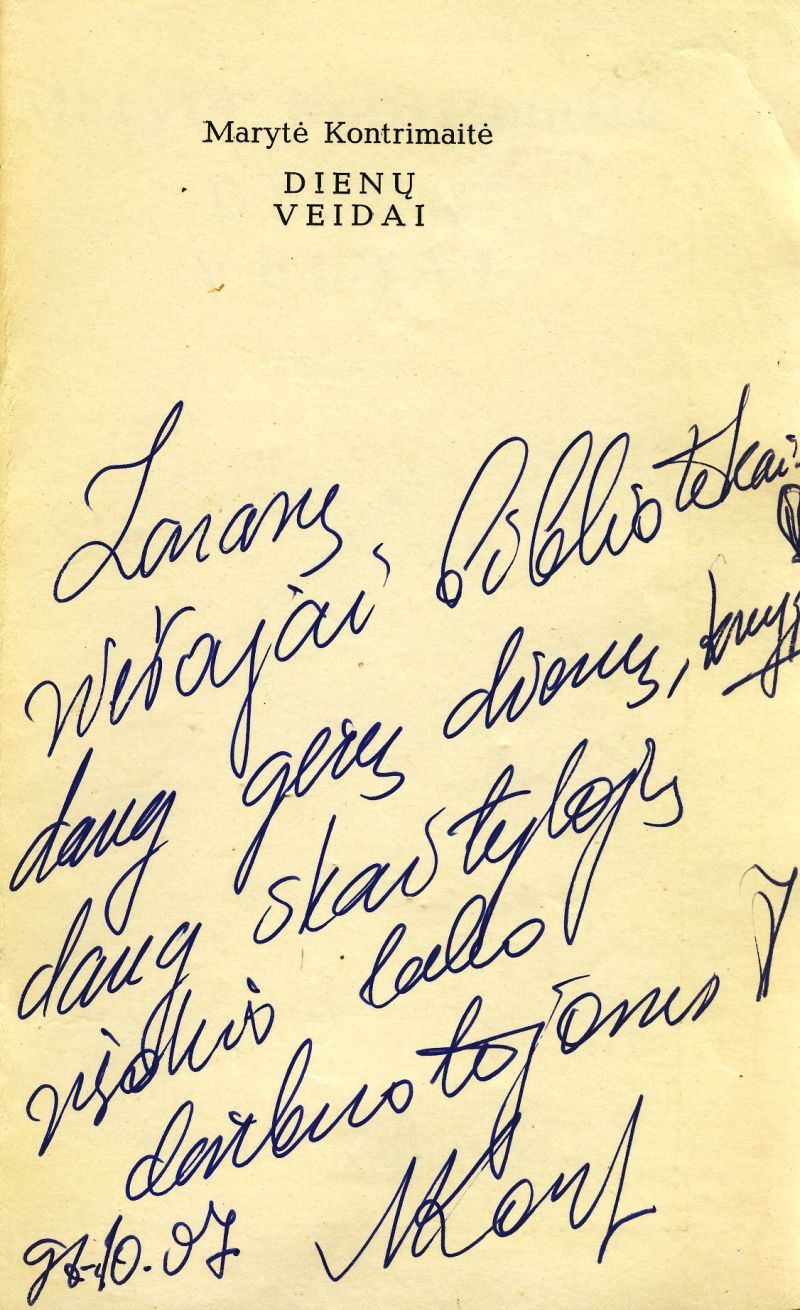 Marytė Kontrimaitė
DIENŲ
VEIDAI
Zarasų
bibliotekai
dang gerų dienų, knygų
daug skaitytojų
visokio labo
darbuotojams
MKont